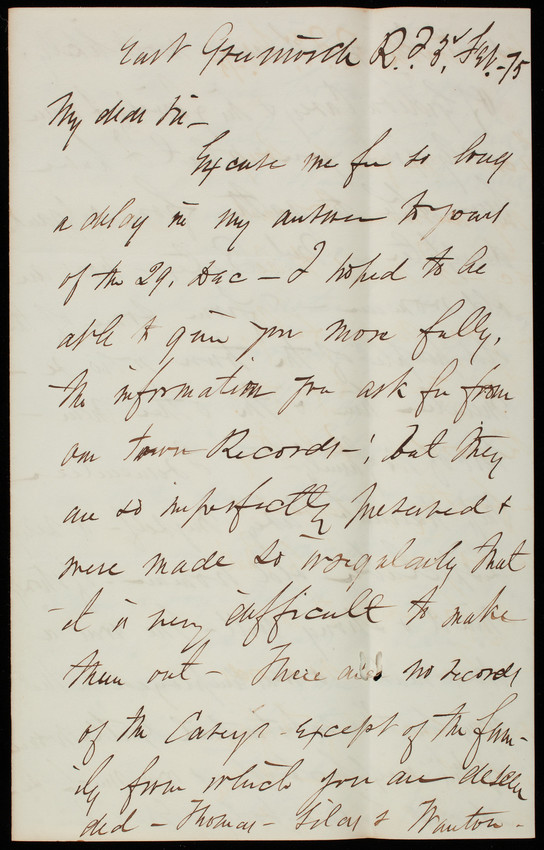 East Greenwich R. I. 3d, Feb. -75
My dear Sir -
Excuse me for so long
a delay in my answer to yours
of the 29, Dec - I hoped to be
able to give you more fully,
the information you ask for from
our town Records - ; but they
are so imperfectly preserved &
were made so irregularly that
it is very difficult to make
them out - There are no records
of the Caseys - except of the fam-
ily from which you are descen
ded - Thomas - Silas & Wanton -